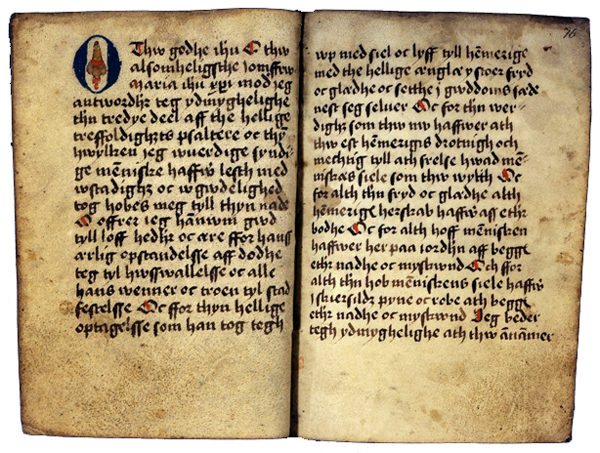 O Thw godhe ihū C thw
alsomheligsthe Jomffrw
Maria ihū mod Jeg
antwordhr teg ydmyghelighe
thn tredye deel aff the hellige
treffoldighzts psaltere oc thn̄
hwylken jeg wuerdige syndi-
ge mēniske haffr lesth med
wstadighz oc wgwdelighed
tog hobes meg tyll thyn nade
C offrer ieg hānwm gwd
tyll loff hedhr oc ære ffor hans
ærlig opstandelse aff dodhe
teg tyl hwswallelsse oc alle
hans wenner oc troen tyl stad
festelsse Oc ffor thyn hellige
optagelsse som han tog tegh
76
wp med siel oc lyff tyll hēmerige
med the hellige ænglæ ystoer fryd
oc glædhe oc setthe j gwddoms sæde
nest seg seluer Oc for thn wer-
dighz som thw nw haffwer ath
thw est hēmerigis drotnigh och
mechtig tyll ath frelse hwad mē-
niskæs siele som thw wylth Oc
for alth thn fryd oc glædhe alth
hēmerigz herskab haffr aff ethr
bodhe Oc for alth hoff mēnisken
haffwer her paa iordhn aff beggz
ethr nadhe oc myskwnd Och ffor
alth thn hob mēniskens siele haffr
j skiersildz pyne oc robe ath beggz
ethr nadhe oc myskwnd Jeg beder
tegh ydmyghelighe ath thw ānāmer